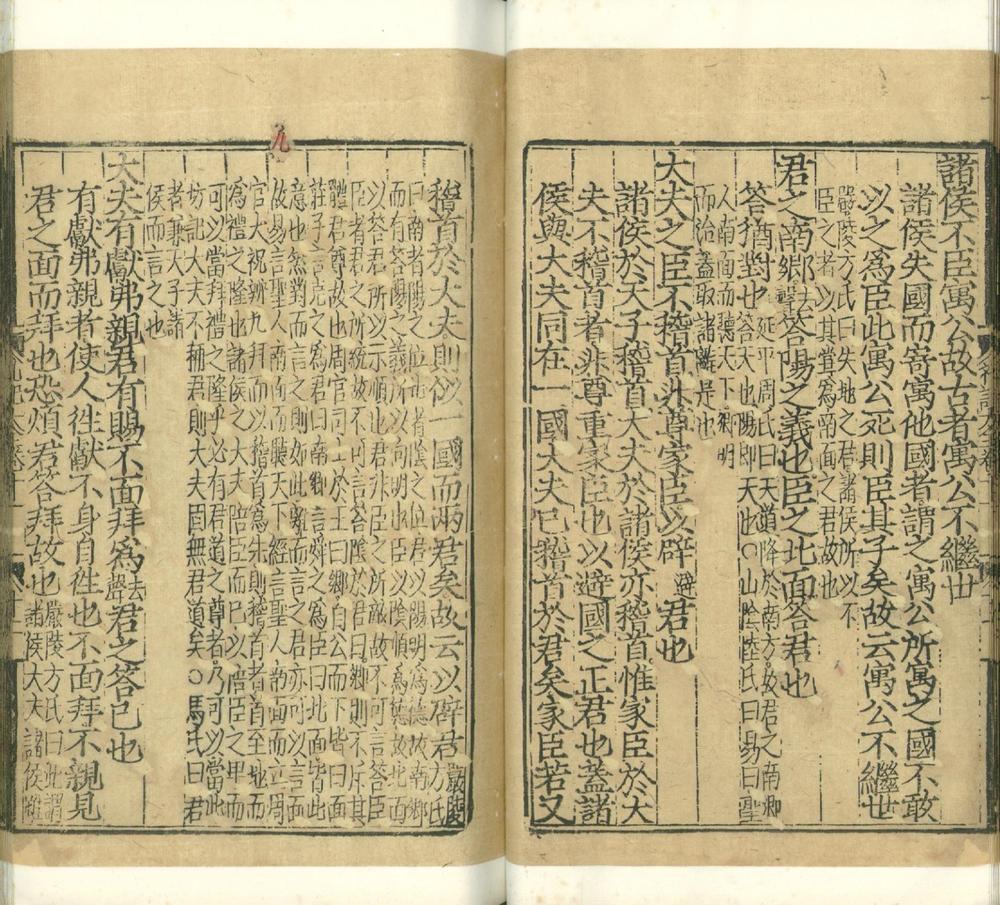 諸侯不臣寓公故古者寓公不繼世
諸侯失國而寄寓他國者謂之寓公所寓之國不敢
以之為臣此寓公死則臣其子矣故云寓公不繼世
嚴陵方氏曰失地之君諸侯所以不
臣之者以其嘗為南面之君故也
君之南鄉去聲答陽之義也臣之北面答君也
答猶對也延平周氏曰天道降於南方故君之南鄉
答天也陽即天也○山陰陸氏曰易曰聖
人南面而聽天下嚮明
而治蓋取諸離是也
大夫之臣不稽首非尊家臣以辟避君也
諸侯於天子稽首大夫於諸侯亦稽首惟家臣於大
夫不稽首者非尊重家臣也以避國之正君也蓋諸
侯與大夫同在一國大夫已稽首於君矣家臣若又
稽首於大夫則似一國而兩君矣故云以辟君嚴陵方氏
曰南者陽之位北者陰之位君以陽明為德故南鄉
而有答陽之義所以向明也臣以陰順為德故北面
以答君所以示順也君非臣之所敵故不可言答臣
臣者君之所統故不可言答陰於君曰鄉則不斥其
體君尊故也周官司士於王曰鄉自公而下皆曰面
莊子言堯之為君曰南鄉言舜之為臣曰北面皆此
意也然對而言之則如此離而言之君亦可以言面
故易言聖人南面而聽天下經言聖人南面而立周
官大祝辨九拜而以稽首為先則稽首者首至地而
為禮之隆也諸侯之大夫陪臣而已以陪臣之卑而
可以當拜禮之隆乎必有君道之尊者乃可以當此
坊記大夫不稱君則大夫固無君道矣○馬氏曰君
者兼天子諸
侯而言之也
大夫有獻弗親君有賜不面拜為去聲君之答己也
有獻弗親者使人往獻不身自往也不面拜不親見
君之面而拜也恐煩君答拜故也嚴陵方氏曰此謂
諸侯大夫諸侯雖